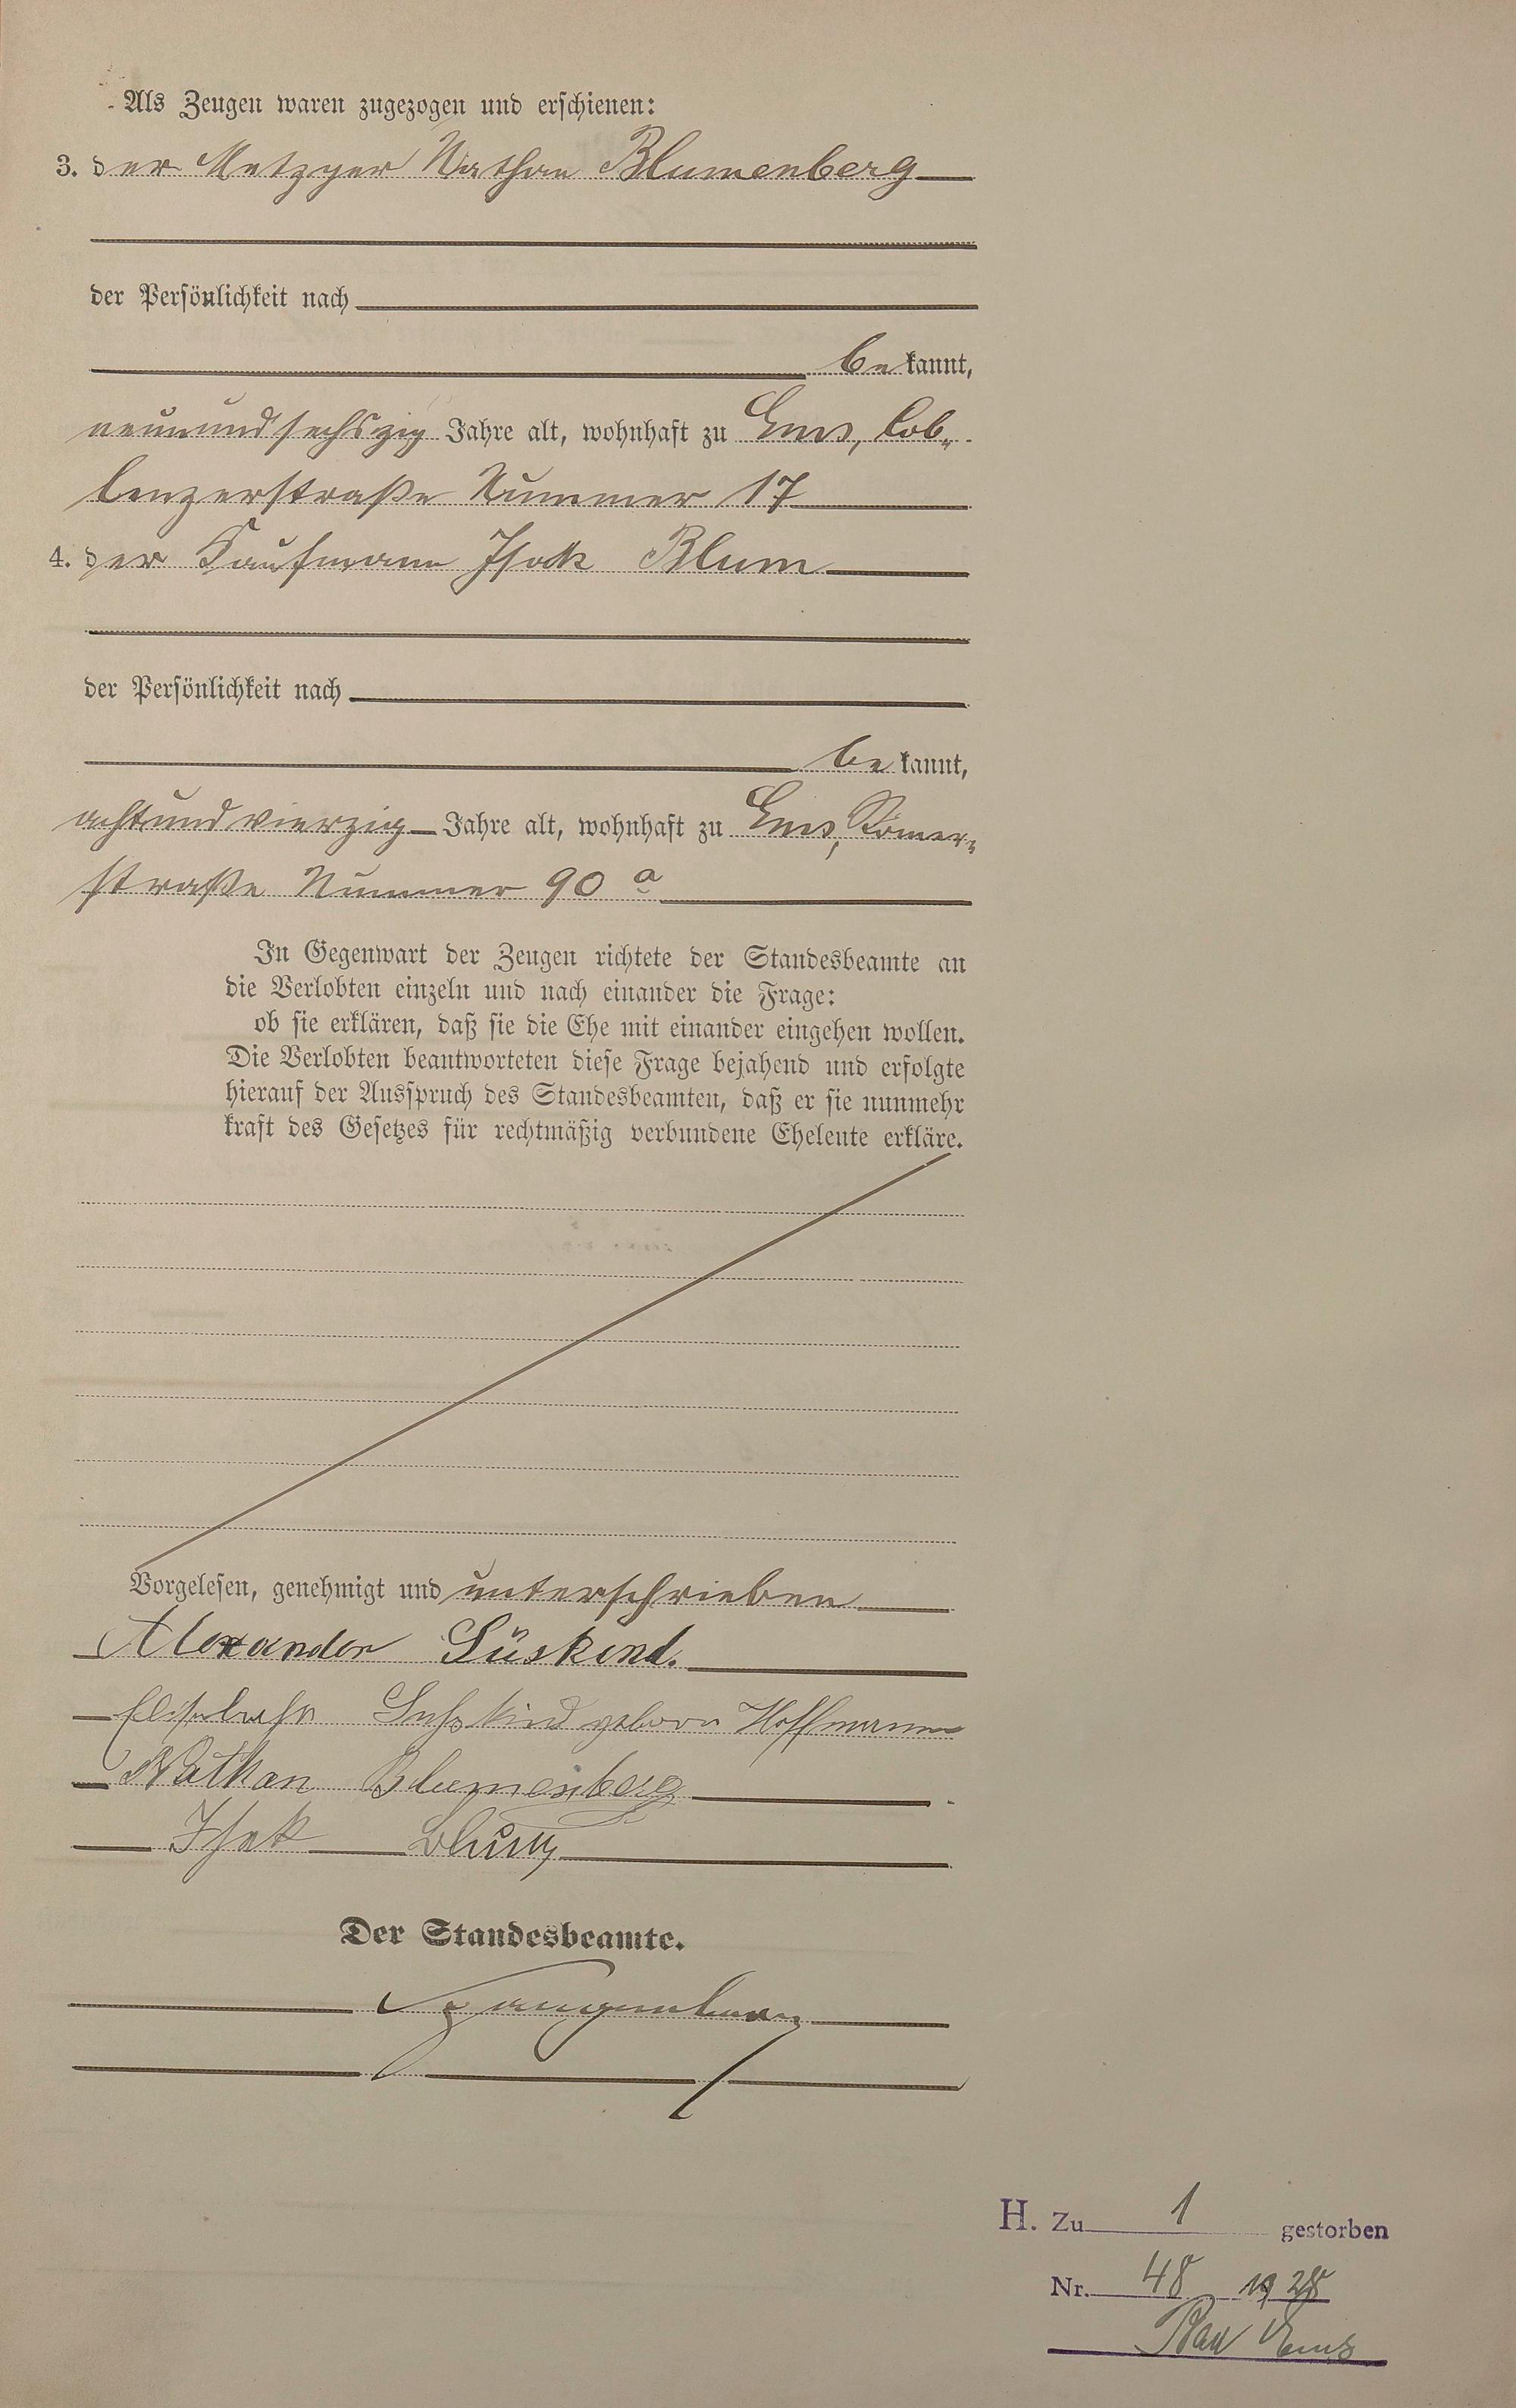 Als Zeugen waren zugezogen und erschienen:
3. der Metzger Nathan Blumenberg
der Persönlichkeit nach
bekannt,
neunundsechszig Jahre alt, wohnhaft zu Ems, Cob-
lenzerstraße Nummer 17
4. der Kaufmann Isak Blum
der Persönlichkeit nach
bekannt,
achtundvierzig Jahre alt, wohnhaft zu Ems, Römer-
straße Nummer 90 a
In Gegenwart der Zeugen richtete der Standesbeamte an
die Verlobten einzeln und nach einander die Frage:
ob sie erklären, daß sie die Ehe mit einander eingehen wollen.
Die Verlobten beantworteten diese Frage bejahend und erfolgte
hierauf der Ausspruch des Standesbeamten, daß er sie nunmehr
kraft des Gesetzes für rechtmäßig verbundene Eheleute erkläre.
Vorgelesen, genehmigt und unterschrieben
Alexander Süskind.
Süßkind geborn Hoffmann
Nathan Blumenberg
Isak Blum
Der Standesbeamte.
H. Zu 1 gestorben
Nr. 48 1928
Bad Ems